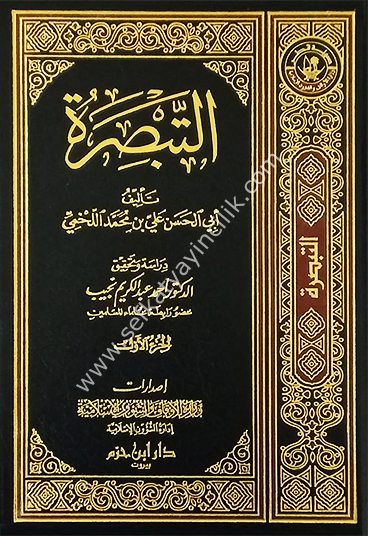 التَّبْصِرَة
تأليف
أبي الحسن علي بن محمد اللخمي
دراسة وتحقيق
الدكتور أحمد عبد الكريم نجيب
عضو رابطة علماء المسلمين
الجزء الأول
إصدارات
وزارة الأوقاف والشؤون الإسلامية
إدارة الشؤون الإسلامية
دار ابن حزم
بيروت
التبصرة
www.seckatyayincilik.com